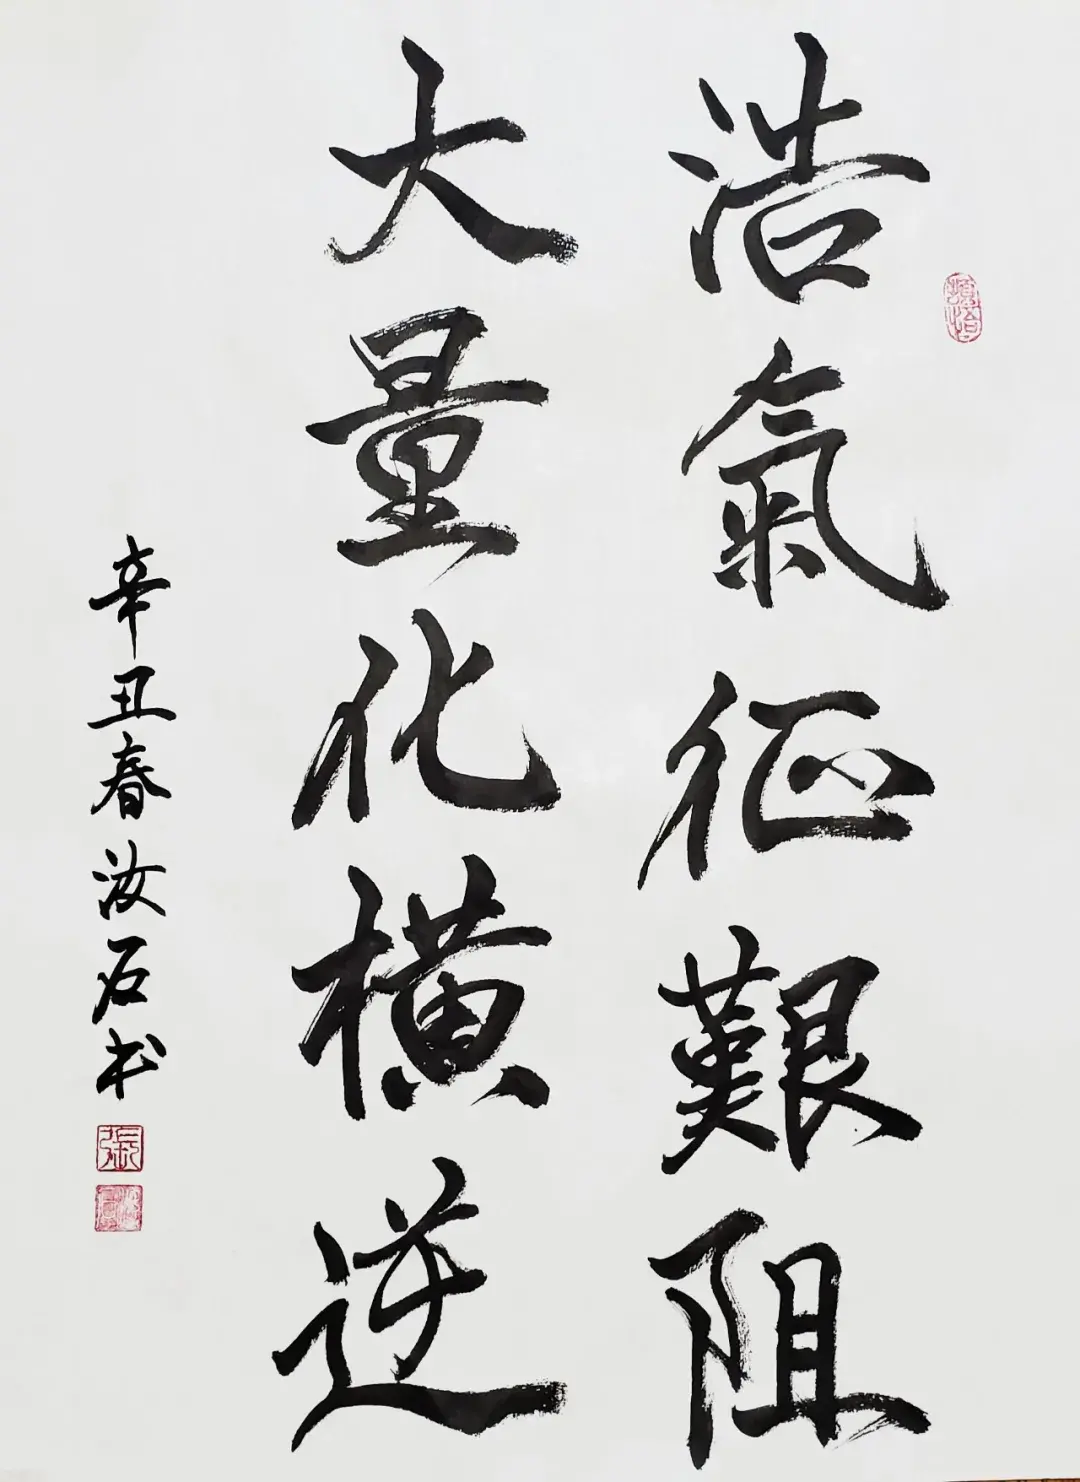 浩氣征艱阻
大量化橫逆
辛丑春汝石书
張